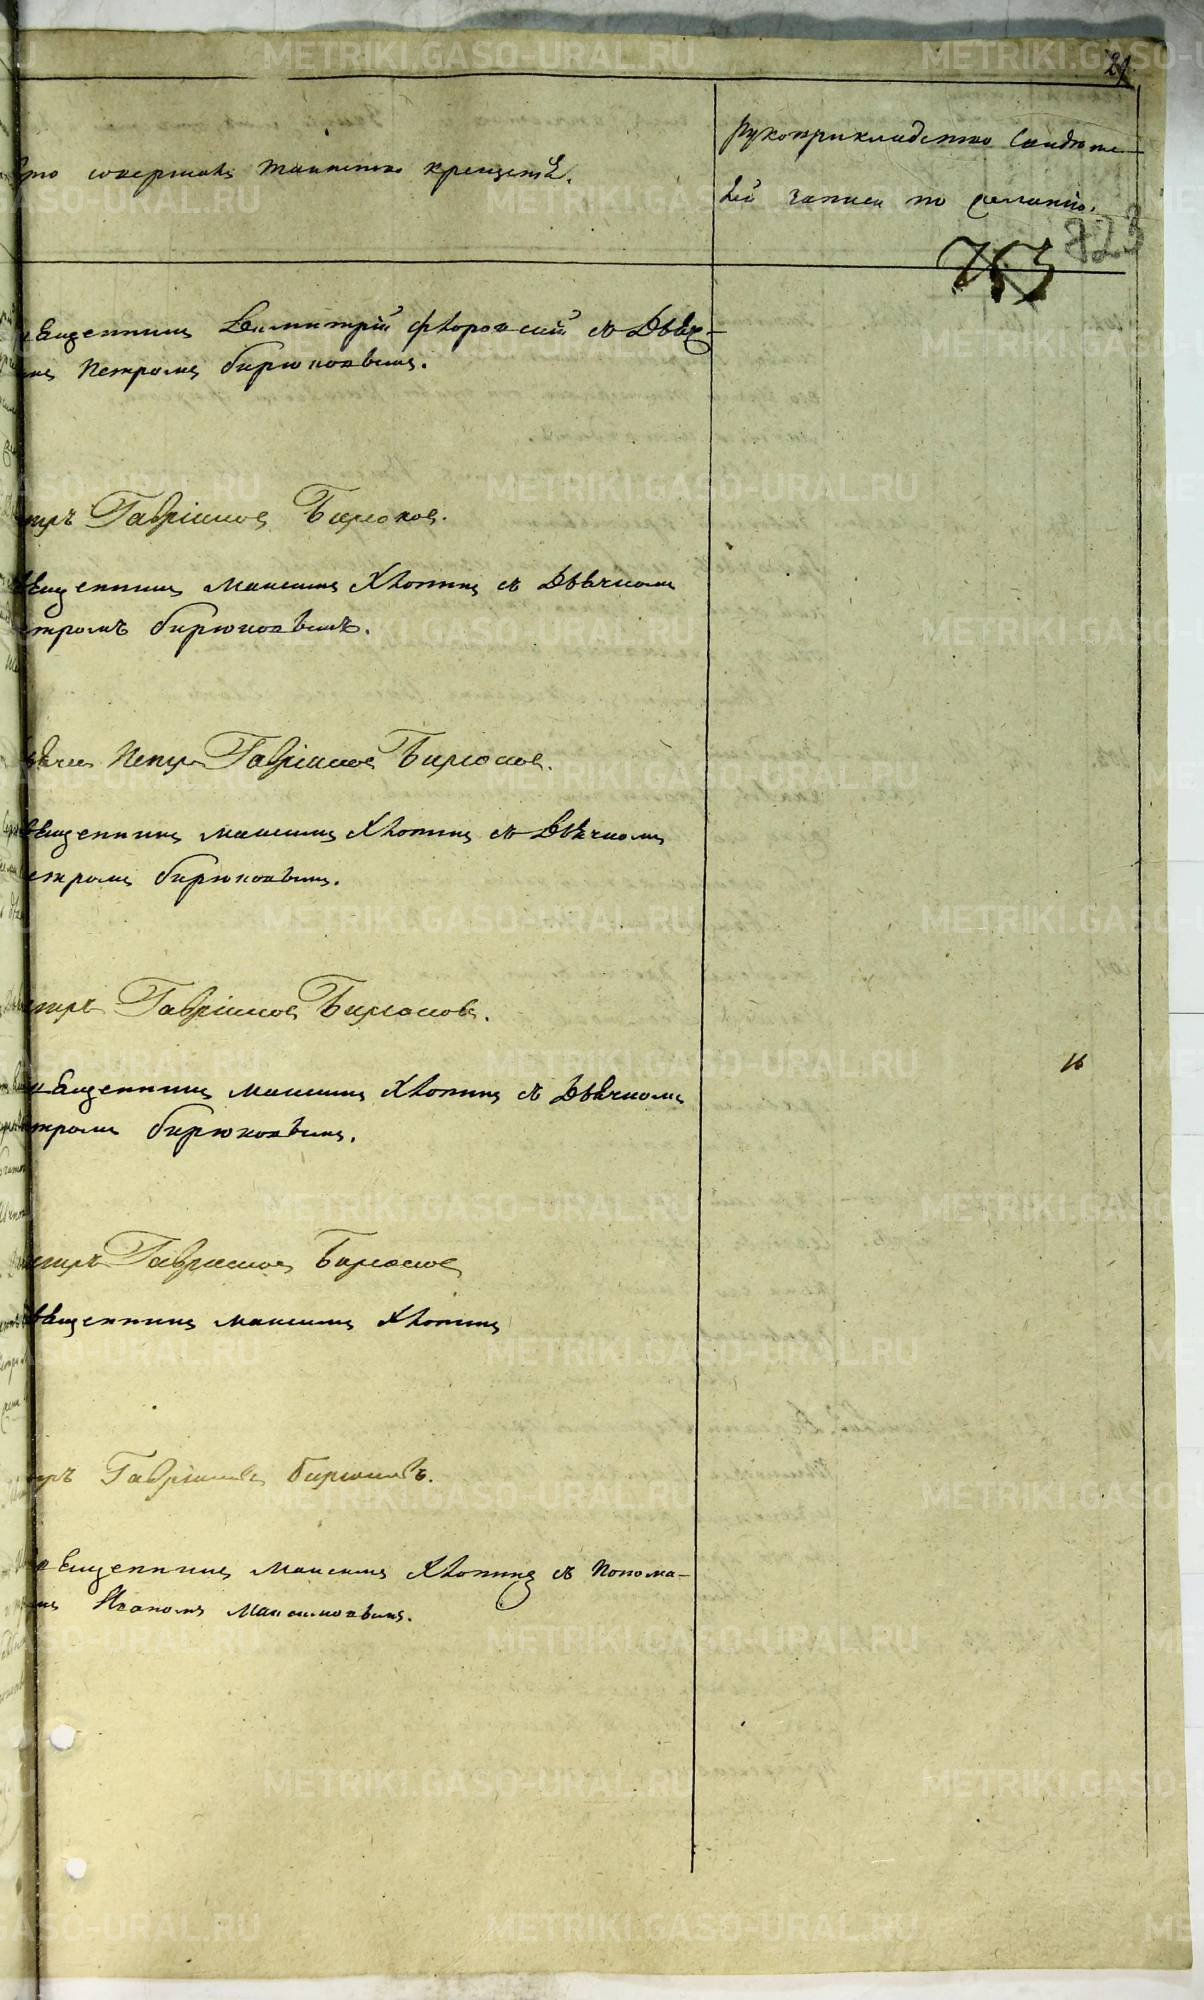 совершалъ таинство крещенія.
Рукоприкладство свидѣте-
лей записи по желанію.
823
Священникъ Димитрій Флоровскій съ Дьяч-
комъ Петромъ Бирюковымъ.
Петръ Гавріиловъ Бирюковъ.
Священникъ Максимъ Хлопинъ съ Дьячкомъ
Петромъ Бирюковымъ.
Дьячекъ Петръ Гавріиловъ Бирюковъ.
Священникъ Максимъ Хлопинъ съ Дьячкомъ
Петромъ Бирюковымъ.
Петръ Гавріиловъ Бирюковъ.
Священникъ Максимъ Хлопинъ съ Дьячкомъ
Петромъ Бирюковымъ.
Петръ Гавріиловъ Бирюковъ
Священникъ Максимъ Хлопинъ
Петръ Гавріиловъ Бирюковъ.
Священникъ Максимъ Хлопинъ съ Понома-
ремъ Иваномъ Максимовымъ.
METRIKI.GASO-URAL.RU